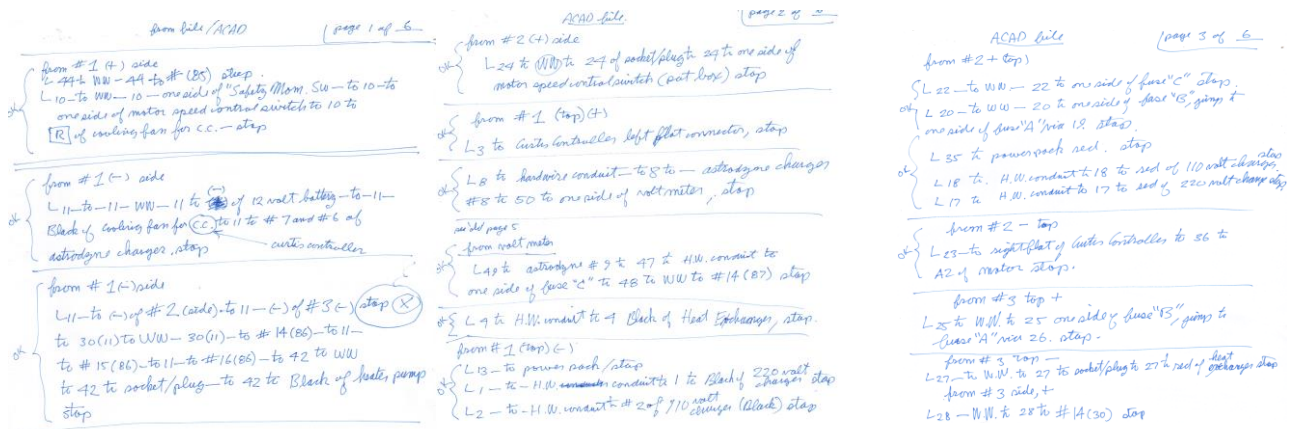 from file/ACAD
page 1 of 6
ok
from #1 (+) side
L 44 to WW - 44 to # (85) stop.
L 10 - to WW - 10 - one side of "Safety Mom. Sw - to 10 - to
one side of motor speed control switch to 10 to
R of cooling fan for c.c. - stop
ok
from #1 (-) side
L 11 - to - 11 - WW - 11 to (-) of 12 volt battery - to - 11 -
Black of cooling fan for C.C. to 11 to #7 and #6 of
astrodyne charger. stop
curtis controller
ok
from #1 (-) side
L 11 - to (-) of #2 (side) - to 11 - (-) of #3 (-) stop X
to 30 (11) to WW - 30 (11) - to #14 (86) - to 11 -
to #15 (86) - to 11 - to #16 (86) - to 42 to WW
to 42 to socket/plug - to 42 to Black of heater pump
stop
ACAD file.
page 2 of 6
ok
from #2 (+) side
L 24 to WW to 24 of socket/plug to 24 to one side of
motor speed control switch (pot. box) stop
ok
from #1 (top) (+)
L 3 to Curtis Controller left flat connector, stop
ok
L 8 to hardwire conduit - to 8 to - astrodyne charger,
#8 to 50 to one side of volt meter, stop
page 5
ok
from volt meter
L 49 to astrodyne #9 to 47 to H.W. conduit to
one side of fuse "C" to 48 to WW to #14 (87) stop
ok
L 4 to H.W. conduit to 4 Black of Heat Exchanger, stop.
ok
from #1 (top) (-)
L 13 - to power pack/stop
L 1 - to - H.W. conduit to 1 to Black of 220 volt charger stop
L 2 - to - H.W. conduit to #2 of 110 volt charger (Black) stop
ACAD file
page 3 of 6
from #2 + top)
ok
L 22 - to WW - 22 to one side of fuse "C" stop.
L 20 - to WW - 20 to one side of fuse "B", jump to
one side of fuse "A" via 19. stop.
ok
L 35 to power pack red. stop
L 18 to. H.W. conduit to 18 to red of 110 volt charger, stop
L 17 to H.W. conduit to 17 to red of 220 volt charger stop
ok
from #2 - top
L 23 - to right flat of Curtis Controller to 36 to
A2 of motor stop.
ok
from #3 top +
L 25 to W.W. to 25 one side of fuse "B", jump to
fuse "A" via 26. stop.
from #3 top -
L 27 - to W.W. to 27 to socket/plug to 27 to red of heat exchanger stop
from #3 side, +
L 28 - W.W. to 28 to #14 (30) stop